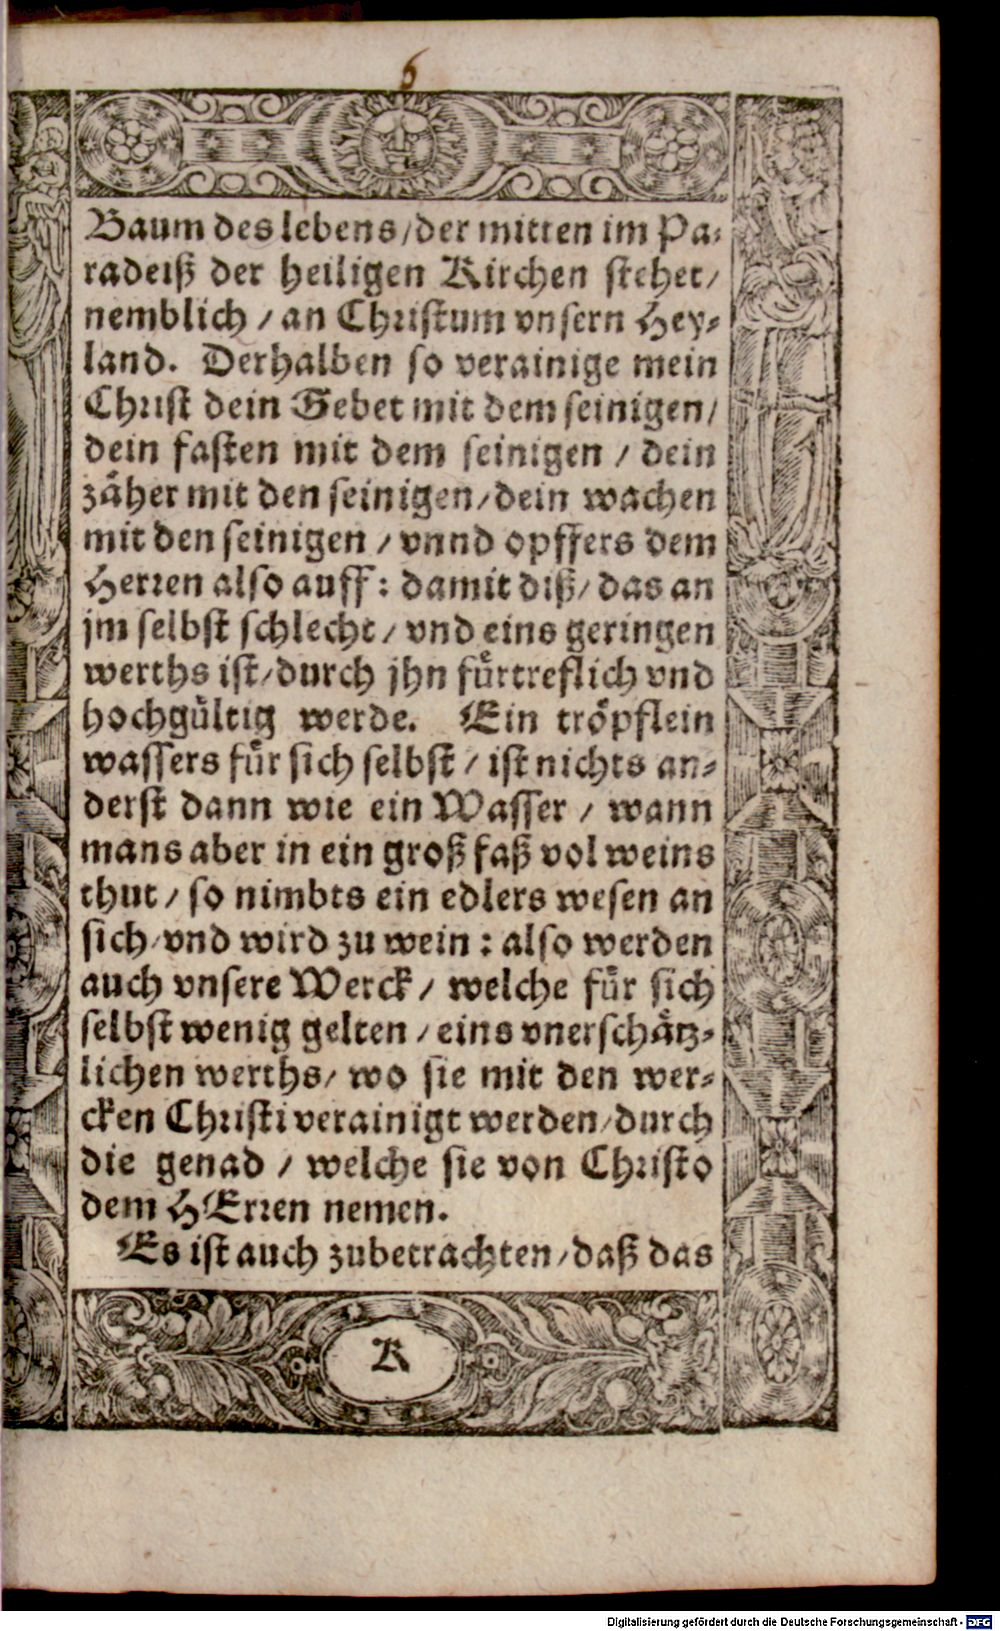 6
Baum des lebens/der mitten im Pa-
radeiß der heiligen Kirchen stehet/
nemblich / an Christum vnsern Hey-
land. Derhalben so verainige mein
Christ dein Gebet mit dem seinigen/
dein fasten mit dem seinigen / dein
zäher mit den seinigen/dein wachen
mit den seinigen / vnnd opffers dem
Herren also auff: damit diß/das an
jm selbst schlecht / vnd eins geringen
werths ist/durch jhn fürtreflich vnd
hochgültig werde. Ein tröpflein
wassers für sich selbst / ist nichts an-
derst dann wie ein Wasser / wann
mans aber in ein groß faß vol weins
thut / so nimbts ein edlers wesen an
sich/vnd wird zu wein : also werden
auch vnsere Werck / welche für sich
selbst wenig gelten / eins vnerschätz-
lichen werths/ wo sie mit den wer-
cken Christi verainigt werden/durch
die genad / welche sie von Christo
dem HErren nemen.
Es ist auch zubetrachten/daß das
K
Digitalisierung gefördert durch die Deutsche Forschungsgemeinschaft - DFG